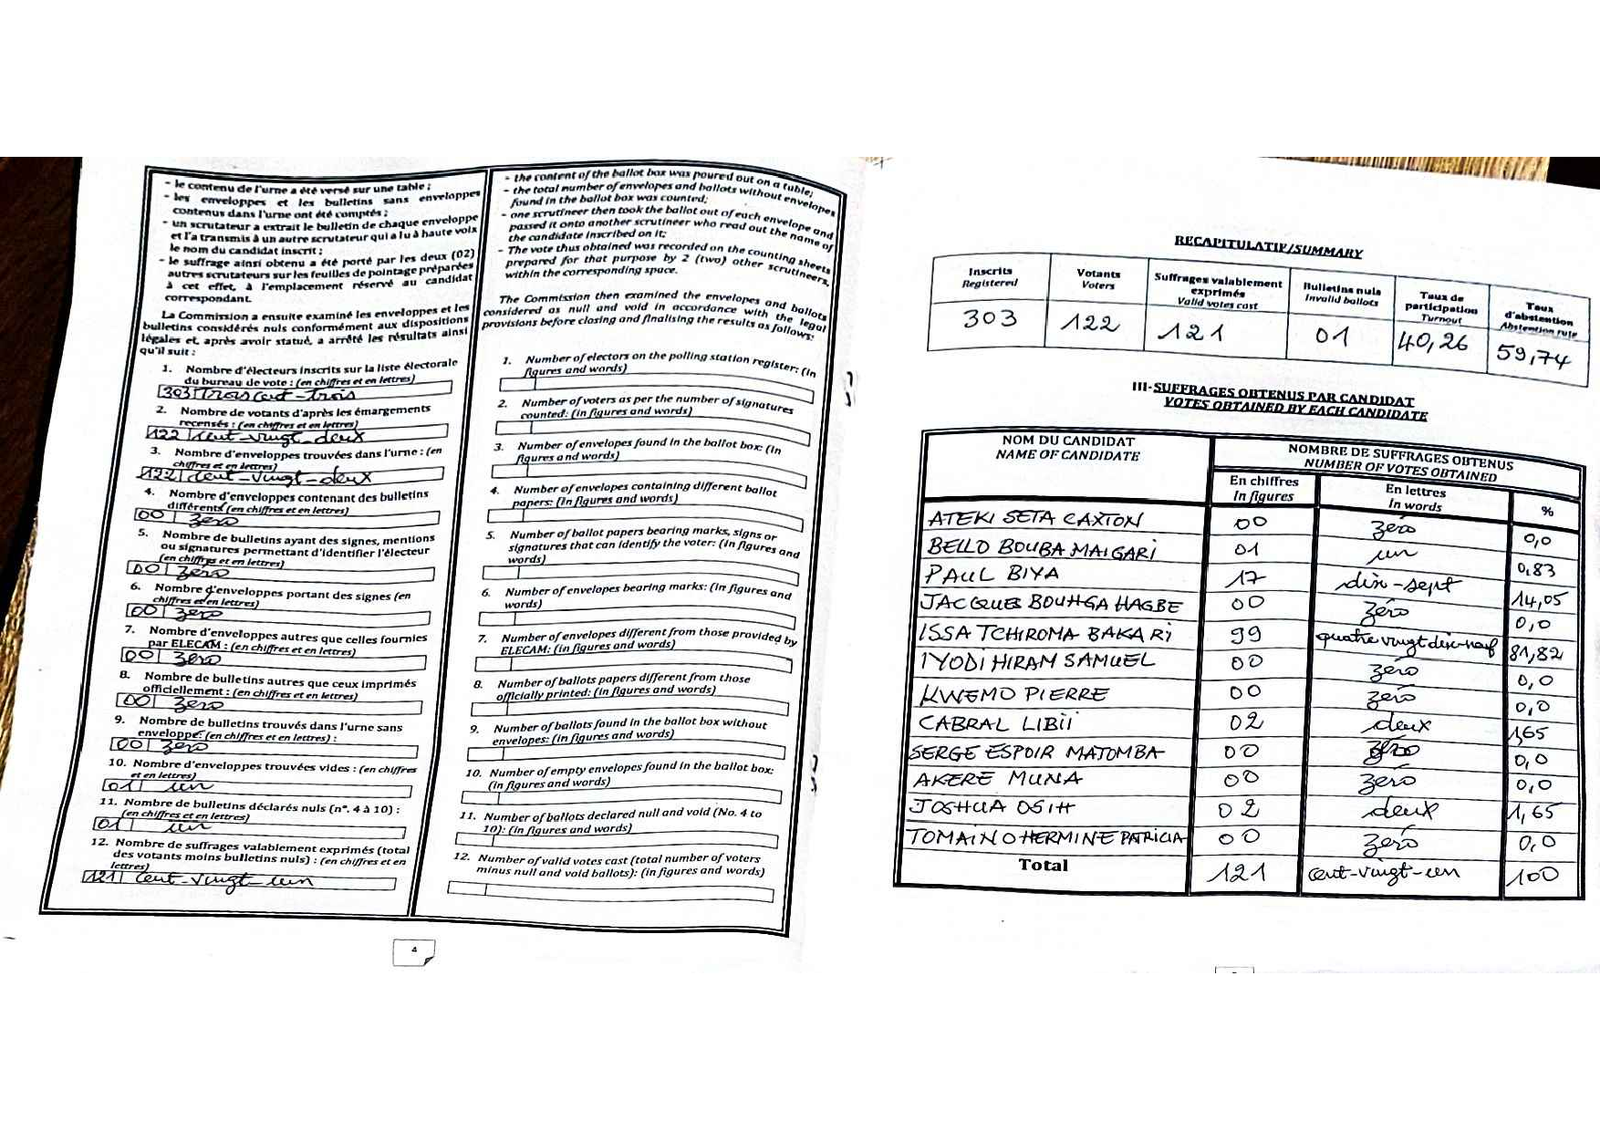 - le contenu de l'urne a été versé sur une table ;
- les enveloppes et les bulletins sans enveloppes
contenus dans l'urne ont été comptés ;
- un scrutateur a extrait le bulletin de chaque enveloppe
et l'a transmis à un autre scrutateur qui a lu à haute voix
le nom du candidat inscrit ;
- le suffrage ainsi obtenu a été porté par les deux (02)
autres scrutateurs sur les feuilles de pointage préparées
à cet effet, à l'emplacement réservé au candidat
correspondant.
La Commission a ensuite examiné les enveloppes et les
bulletins considérés nuls conformément aux dispositions
légales et, après avoir statué, a arrêté les résultats ainsi
qu'il suit :
1. Nombre d'électeurs inscrits sur la liste électorale
du bureau de vote : (en chiffres et en lettres)
303 Trois cent-trois
2. Nombre de votants d'après les émargements
recensés : (en chiffres et en lettres)
122 cent-vingt-deux
3. Nombre d'enveloppes trouvées dans l'urne : (en
chiffres et en lettres)
122 cent-vingt-deux
4. Nombre d'enveloppes contenant des bulletins
différents (en chiffres et en lettres)
00 zéro
5. Nombre de bulletins ayant des signes, mentions
ou signatures permettant d'identifier l'électeur
(en chiffres et en lettres)
00 zéro
6. Nombre d'enveloppes portant des signes (en
chiffres et en lettres)
00 zéro
7. Nombre d'enveloppes autres que celles fournies
par ELECAM : (en chiffres et en lettres)
00 zéro
8. Nombre de bulletins autres que ceux imprimés
officiellement : (en chiffres et en lettres)
00 zéro
9. Nombre de bulletins trouvés dans l'urne sans
enveloppe : (en chiffres et en lettres) :
00 zéro
10. Nombre d'enveloppes trouvées vides : (en chiffres
et en lettres)
01 un
11. Nombre de bulletins déclarés nuls (n°. 4 à 10) :
(en chiffres et en lettres)
01 un
12. Nombre de suffrages valablement exprimés (total
des votants moins bulletins nuls) : (en chiffres et en
lettres)
121 cent-vingt-un
- the content of the ballot box was poured out on a table;
- the total number of envelopes and ballots without envelopes
found in the ballot box was counted;
- one scrutineer then took the ballot out of each envelope and
passed it onto another scrutineer who read out the name of
the candidate inscribed on it;
- The vote thus obtained was recorded on the counting sheets
prepared for that purpose by 2 (two) other scrutineers,
within the corresponding space.
The Commission then examined the envelopes and ballots
considered as null and void in accordance with the legal
provisions before closing and finalising the results as follows:
1. Number of electors on the polling station register: (in
figures and words)
2. Number of voters as per the number of signatures
counted: (in figures and words)
3. Number of envelopes found in the ballot box: (in
figures and words)
4. Number of envelopes containing different ballot
papers: (in figures and words)
5. Number of ballot papers bearing marks, signs or
signatures that can identify the voter: (in figures and
words)
6. Number of envelopes bearing marks: (in figures and
words)
7. Number of envelopes different from those provided by
ELECAM: (in figures and words)
8. Number of ballots papers different from those
officially printed: (in figures and words)
9. Number of ballots found in the ballot box without
envelopes: (in figures and words)
10. Number of empty envelopes found in the ballot box:
(in figures and words)
11. Number of ballots declared null and void (No. 4 to
10): (in figures and words)
12. Number of valid votes cast (total number of voters
minus null and void ballots): (in figures and words)
4
RECAPITULATIF/SUMMARY
Inscrits Votants Suffrages valablement exprimés Bulletins nuls Taux de participation Taux d'abstention
Registered Voters Valid votes cast Invalid ballots Turnout Abstention rate
303 122 121 01 40,26 59,74
III-SUFFRAGES OBTENUS PAR CANDIDAT
VOTES OBTAINED BY EACH CANDIDATE
NOM DU CANDIDAT NOMBRE DE SUFFRAGES OBTENUS
NAME OF CANDIDATE NUMBER OF VOTES OBTAINED
En chiffres En lettres %
In figures In words
ATEKI SETA CAXTON 00 zéro 0,0
BELLO BOUBA MAIGARI 01 un 0,83
PAUL BIYA 17 dix-sept 14,05
JACQUES BOUHGA HAGBE 00 zéro 0,0
ISSA TCHIROMA BAKARI 99 quatre vingt dix-neuf 81,82
IYODI HIRAM SAMUEL 00 zéro 0,0
KWEMO PIERRE 00 zéro 0,0
CABRAL LIBII 02 deux 1,65
SERGE ESPOIR MATOMBA 00 zéro 0,0
AKERE MUNA 00 zéro 0,0
JOSHUA OSIH 02 deux 1,65
TOMAINO HERMINE PATRICIA 00 zéro 0,0
Total 121 cent-vingt-un 100